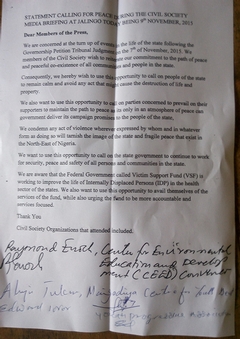 STATEMENT CALLING FOR PEACE DURING THE CIVIL SOCIETY
MEDIA BRIEFING AT JALINGO TODAY BEING 9TH NOVEMBER, 2015
Dear Members of the Press,
We are concerned at the turn of events in the life of the state following the
Governorship Petition Tribunal Judgement on the 7th of November, 2015. We
members of the Civil Society wish to our commitment to the path of peace
and peaceful co-existence of all communities and people in the state.
Consequently, we hereby wish to use this opportunity to call on people of the state
to remain calm and avoid any act that might cause the destruction of life and
property.
We also want to use this opportunity to call on parties concerned to prevail on their
supporters to maintain the path to peace as its only in an atmosphere of peace can
government deliver its campaign promises to the people of the state.
We condemn any act of violence wherever expressed by whom and in whatever
form as doing so will tarnish the image of the state and fragile peace that exist in
the North-East of Nigeria.
We want to use this opportunity to call on the state government to continue to work
for security, peace and safety of all persons and communities in the state.
We are aware that the Federal Government called Victim Support Fund (VSF) is
working to improve the life of Internally Displaced Persons (IDP) in the health
sector of the state. We also want to use this opportunity to avail themselves of the
services of the fund, while also urging the fund to be more accountable and
services focused.
Thank You
Civil Society Organizations that attended included.
Raymond Enoch, Center for Environmental
Education and Develop
ment (CEED)
Centre for
Edward